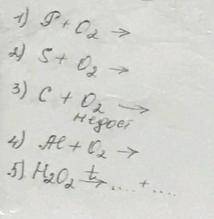 1) P + O₂ →
2) S + O₂ →
3) C + O₂ →
недост
4) Al + O₂ →
5) H₂O₂ t→ .... + .....